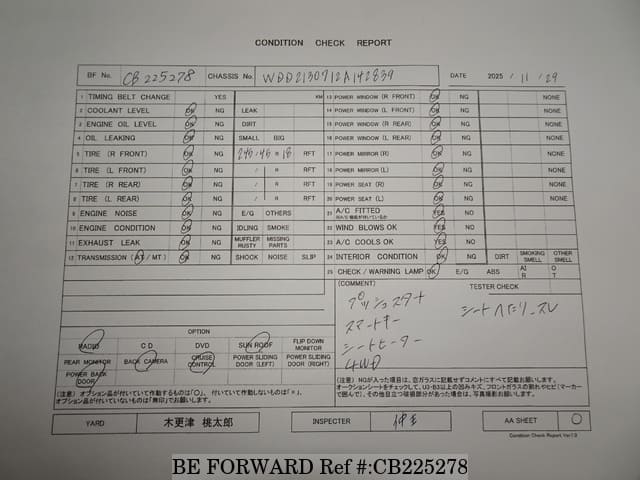 CONDITION CHECK REPORT
BF No. CB225278 CHASSIS No. WDD2130712A142839 DATE 2025 / 11 / 29
1 TIMING BELT CHANGE YES KM 13 POWER WINDOW (R FRONT) OK NG NONE
2 COOLANT LEVEL OK NG LEAK 14 POWER WINDOW (L FRONT) OK NG NONE
3 ENGINE OIL LEVEL OK NG DIRT 15 POWER WINDOW (R REAR) OK NG NONE
4 OIL LEAKING OK NG SMALL BIG 16 POWER WINDOW (L REAR) OK NG NONE
5 TIRE (R FRONT) OK NG 245 / 45 R 18 RFT 17 POWER MIRROR (R) OK NG NONE
6 TIRE (L FRONT) OK NG / R RFT 18 POWER MIRROR (L) OK NG NONE
7 TIRE (R REAR) OK NG / R RFT 19 POWER SEAT (R) OK NG NONE
8 TIRE (L REAR) OK NG / R RFT 20 POWER SEAT (L) OK NG NONE
9 ENGINE NOISE OK NG E/G OTHERS 21 A/C FITTED YES NG
10 ENGINE CONDITION OK NG IDLING SMOKE 22 WIND BLOWS OK YES NG
11 EXHAUST LEAK OK NG MUFFLER RUSTY MISSING PARTS 23 A/C COOLS OK YES NG
12 TRANSMISSION (AT/MT) OK NG SHOCK NOISE SLIP 24 INTERIOR CONDITION OK NG DIRT SMOKING SMELL OTHER SMELL
25 CHECK / WARNING LAMP OK E/G ABS AIR OT
(COMMENT) TESTER CHECK
プッシュスタート
スマートキー
シートヒーター
4WD
シートへたり、スレ
OPTION
RADIO CD DVD SUN ROOF FLIP DOWN MONITOR
REAR MONITOR BACK CAMERA CRUISE CONTROL POWER SLIDING DOOR (LEFT) POWER SLIDING DOOR (RIGHT)
POWER BACK DOOR
(注意) オプション品が付いていて作動するものは「○」、付いていて作動しないものは「×」、
オプション品が付いていないものは「無印」でお願いします。
(注意) NGが入った項目は、窓ガラスに記載せずコメントにすべて記載お願いします。
オークションシートをチェックして、U3・B3以上の凹みキズ、フロントガラスの割れやヒビ(マーカー
で囲んで)、その他目立つ破損部分があった場合は、写真撮影お願いします。
YARD 木更津 桃太郎 INSPECTER AA SHEET ○
Condition Check Report Ver1.0
BE FORWARD Ref #:CB225278